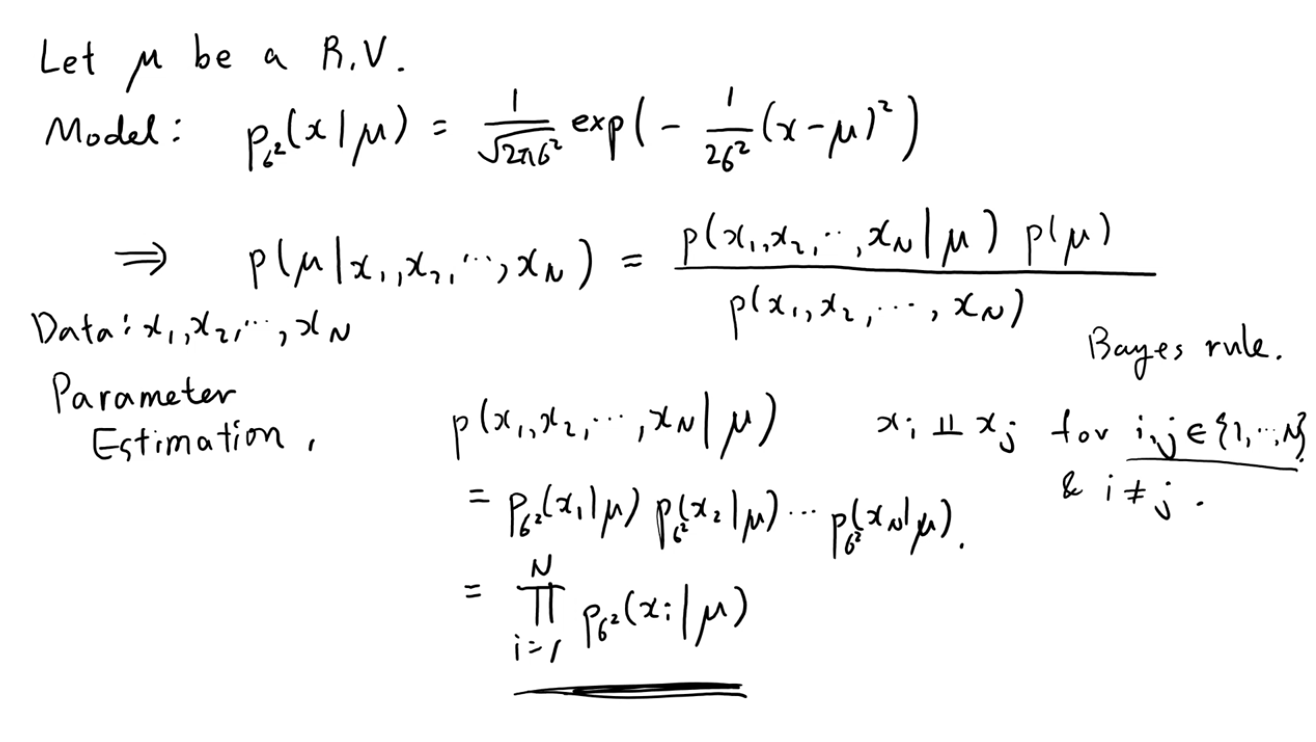 Let μ be a R.V.
Model: p_{σ²}(x|μ) = \frac{1}{\sqrt{2πσ²}} exp(- \frac{1}{2σ²}(x-μ)²)
⇒ p(μ|x₁,x₂,…,x_N) = \frac{p(x₁,x₂,…,x_N|μ) p(μ)}{p(x₁,x₂,…,x_N)}
Data: x₁,x₂,…,x_N
Bayes rule.
Parameter
Estimation.
p(x₁,x₂,…,x_N|μ) x_i ⫫ x_j for i,j ∈ {1,…,N}
& i ≠ j.
= p_{σ²}(x₁|μ) p_{σ²}(x₂|μ) … p_{σ²}(x_N|μ).
= ∏_{i=1}^{N} p_{σ²}(x_i|μ)